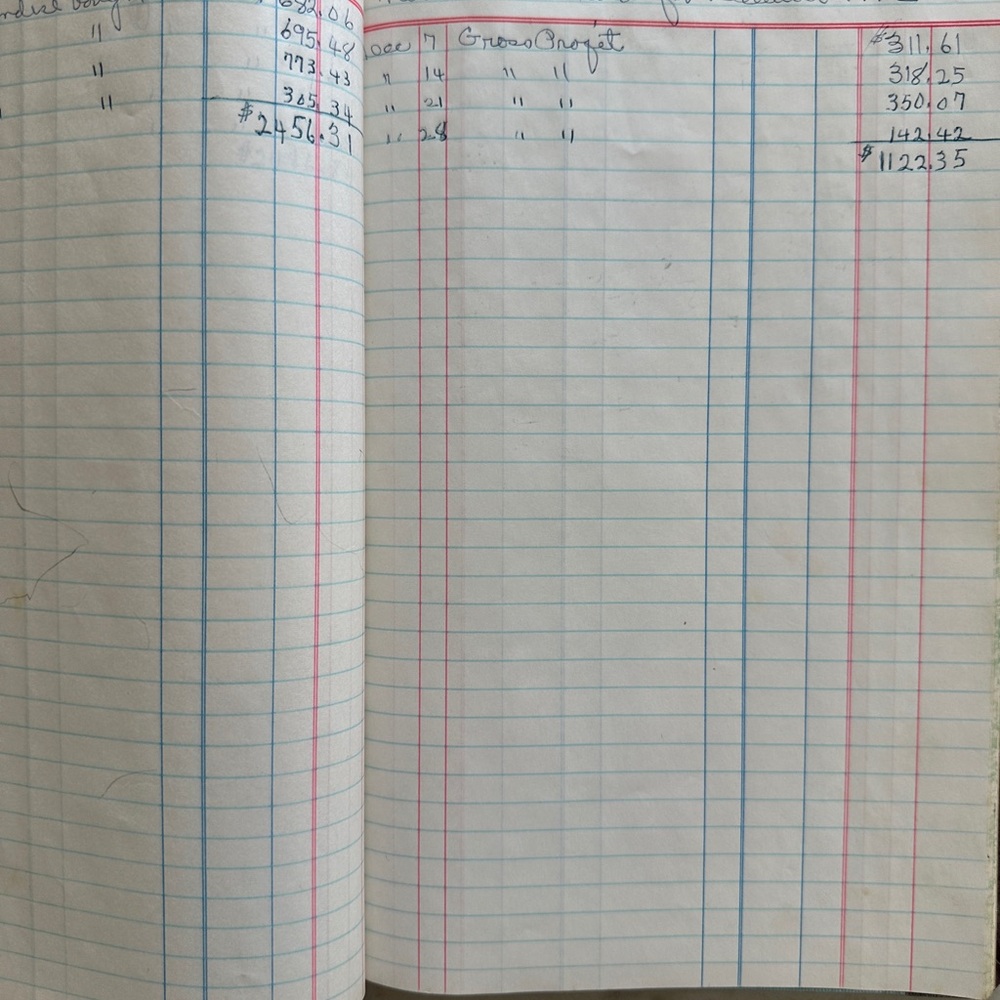 682.06
" 695.48
" 773.43
" 305.34
$2456.31
Dec 7 Gross Profit $311.61
" 14 " " 318.25
" 21 " " 350.07
" 28 " " 142.42
$1122.35